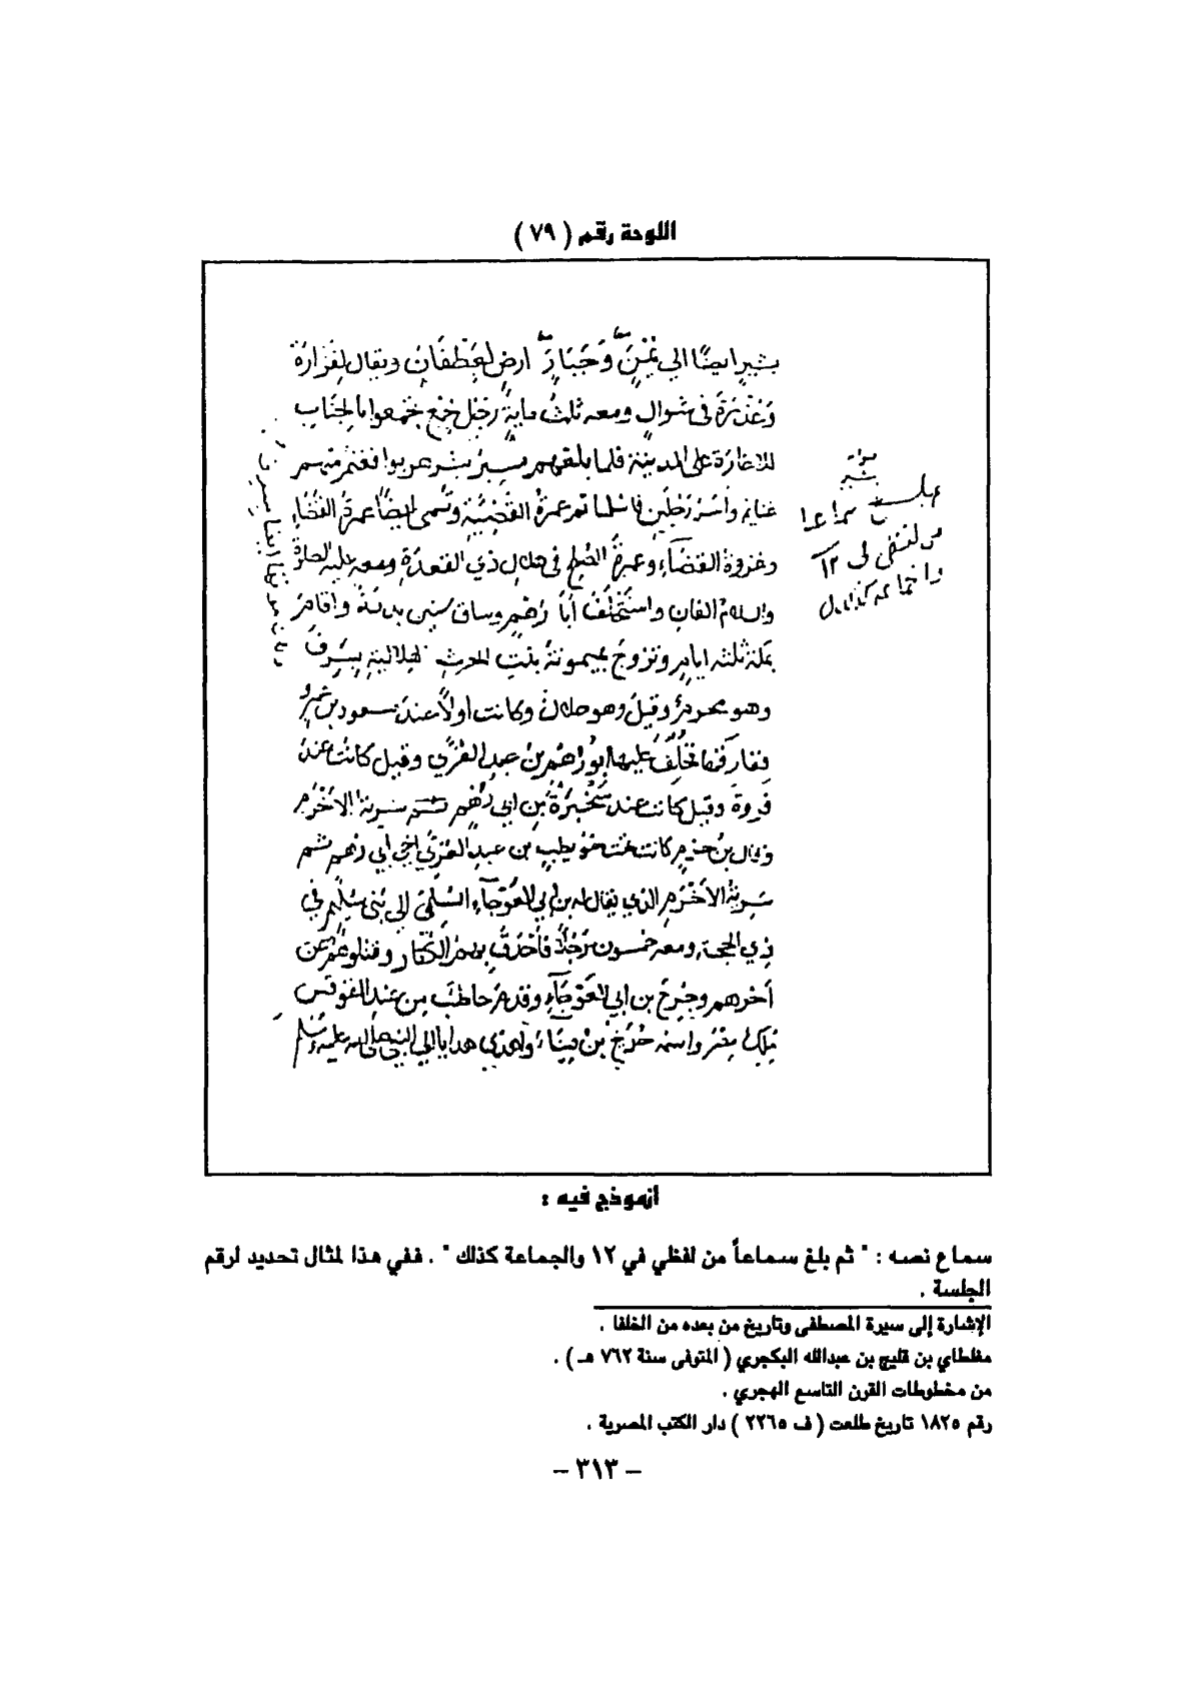 اللوحة رقم ( ٧٩ )
بشير ايضًا الي يُمْنٍ وَجَبَارٍ ارض لغطفان ويقال لفزارة
وعذرة في شوال ومعه ثلث ماية رجل لجمع تجمعوا بالجناب
للاغارة على المدينة فلما بلغهم مسير بشير هربوا فغنم منهم
غنايم وأسر رجلين فاسلما ثم عمرة القضية وتسمى ايضا عمرة القضاء
وغزوة القضاء وعمرة الصلح في هلال ذي القعدة ومعه عليه الصلوة
والسلام الفان واستخلف أبا رهم وساق ستين بدنة واقام
بمكة ثلثة ايام وتزوج بميمونة بنت الحرث الهلالية بسرف
وهو محرم وقيل وهو حلال وكانت اولا عند مسعود بن عمرو
ففارقها فخلف عليها ابو رهم بن عبد العزي وقيل كانت عند
فروة وقيل كانت عند سخبرة بن ابي رهم ثم سرية الاخرم
وقال بن حزم كانت تحت حويطب بن عبد العزي اخي ابي رهم ثم
سرية الاخرم الذي يقال له بن ابي العوجاء السلمي الي بني سليم في
ذي الحجة ومعه خمسون رجلا فأحدق بهم الكفار وقتلوهم عن
اخرهم وجرح بن ابي العوجاء وقدم حاطب من عند المقوقس
ملك مصر واسمه جريج بن مينا واهدي هدايا الي النبي صلى الله عليه وسلم
بشير
بلغ سماعا
من لفظي في ١٢
والجماعة كذلك
أنموذج فيه :
سماع نصه : " ثم بلغ سماعاً من لفظي في ١٢ والجماعة كذلك " . ففي هذا لمثال تحديد لرقم
الجلسة .
الإشارة إلى سيرة المصطفى وتاريخ من بعده من الخلفا .
مغلطاي بن قليج بن عبدالله البكجري ( المتوفى سنة ٧٦٢ هـ ) .
من مخطوطات القرن التاسع الهجري .
رقم ١٨٢٥ تاريخ طلعت ( ف ٢٢٦٥ ) دار الكتب المصرية .
– ٣١٣ –